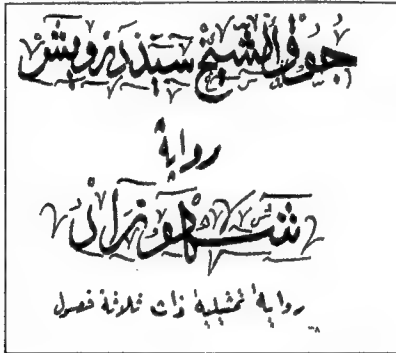 جوق الشيخ سيد درويش
رواية
شهوزاد
رواية تمثيلية ذات ثلاثة فصول